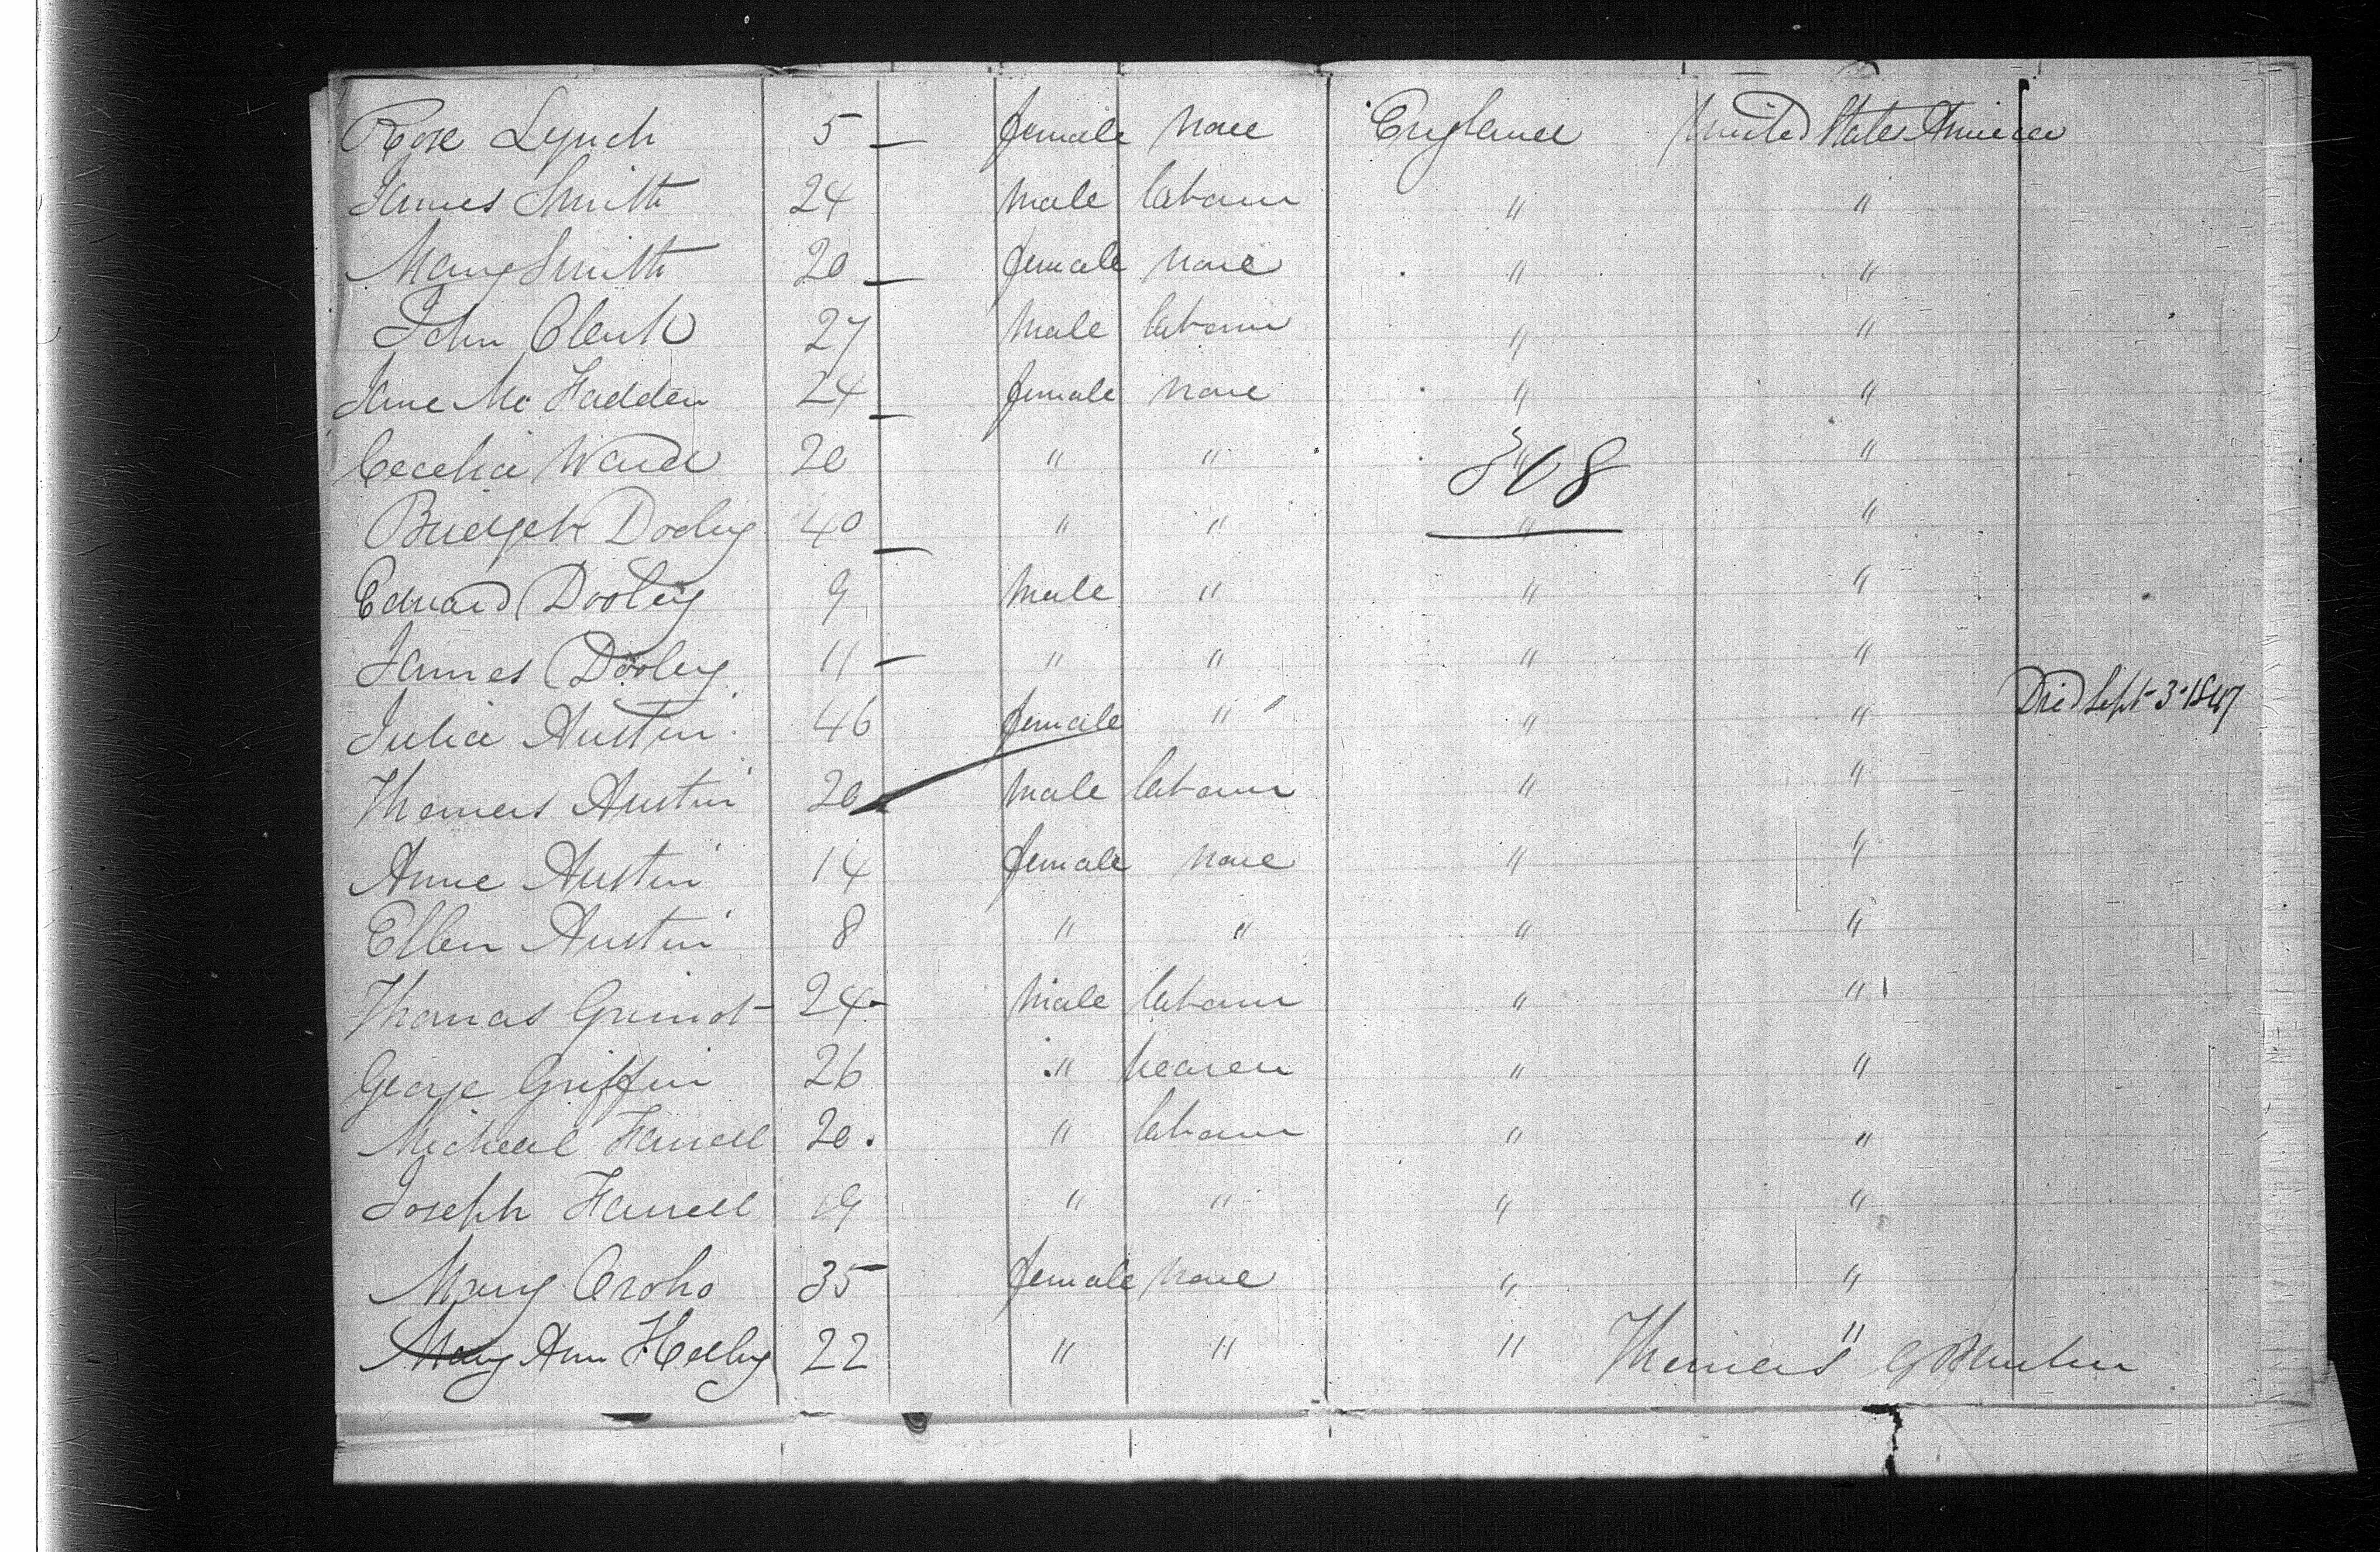 Rose Lynch 5 female none England United State America
James Smith 24 male labour " "
Mary Smith 20 female none " "
John Clark 27 male labour " "
Jane Mc Fadden 24 female none " "
Cecelia Ward 20 " " " "
348
Bridget Dooley 40 " " " "
Edward Dooley 9 male " " "
James Dooley 11 " " " "
Julia Austin 46 female " " " Died Sept 3 1847
Thomas Austin 20 male labour " "
Anne Austin 14 female none " "
Ellen Austin 8 " " " "
Thomas 24 male labour " "
George Griffin 26 " " "
Micheal Farrell 20 " labour " "
Joseph Farrell 19 " " " "
Mary Croho 35 female none " "
Mary Ann 22 " " " "
Thomas